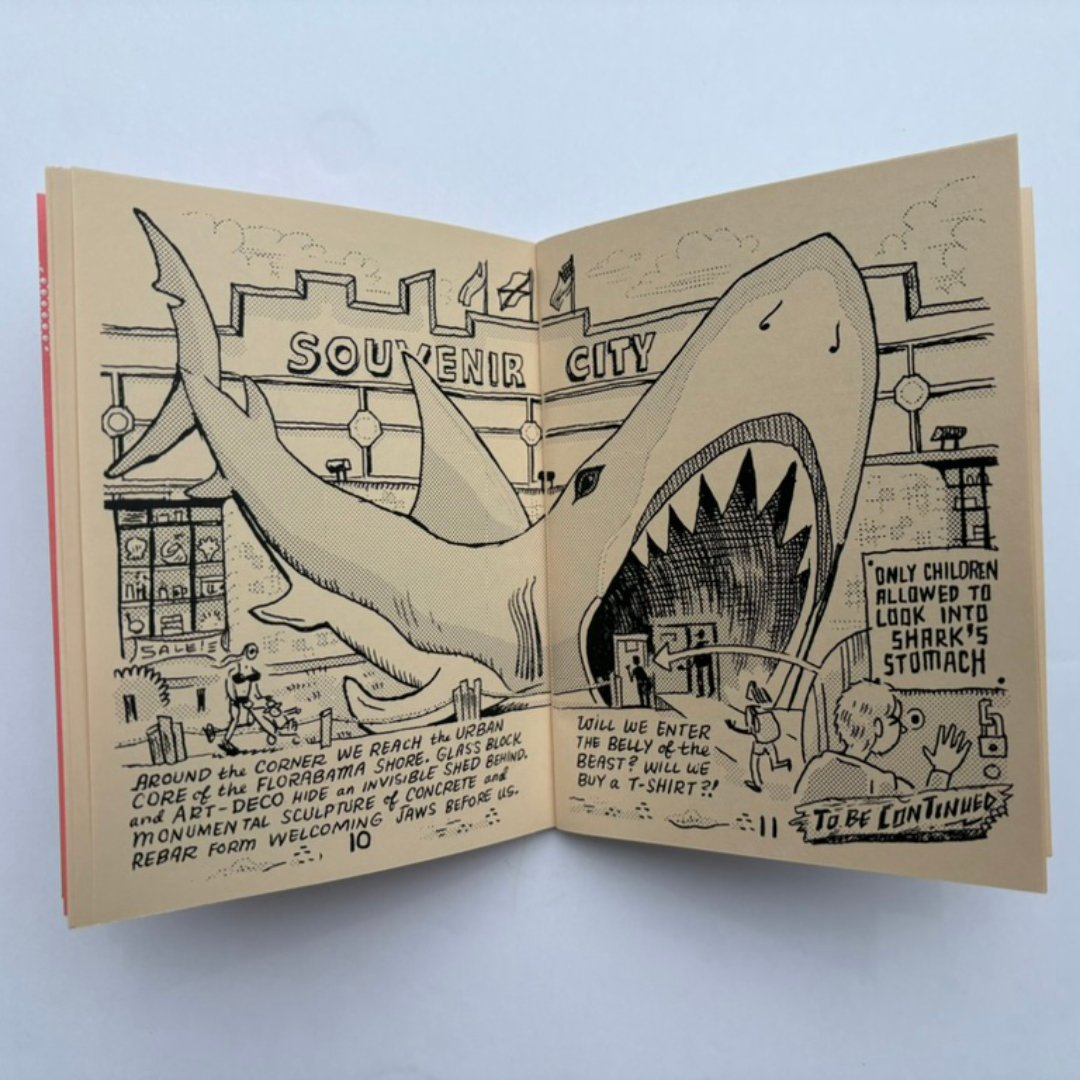 SOUVENIR CITY
SALE!
ONLY CHILDREN
ALLOWED TO
LOOK INTO
SHARK'S
STOMACH
AROUND the CORNER WE REACH the URBAN
CORE of the FLORABAMA SHORE. GLASS BLOCK
and ART-DECO HIDE an INVISIBLE SHED BEHIND.
MONUMENTAL SCULPTURE of CONCRETE and
REBAR FORM WELCOMING JAWS BEFORE US.
10
WILL WE ENTER
THE BELLY of the
BEAST? WILL WE
BUY a T-SHIRT?!
11
TO BE CONTINUED